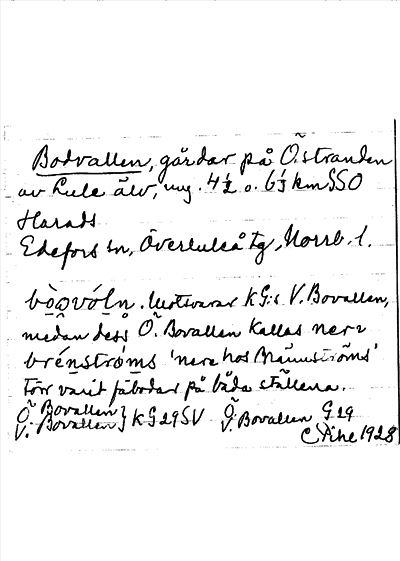 Bodvallen, gårdar på Ö. stranden
av Lule älv, ung. 4½ o. 6⅓ km SSO
Harads
Edefors sn, Överluleå tg, Norrb. l.
bòωvóln. Motsvarar KG:s V. Bovallen,
medan dess Ö. Bovallen kallas ner
brénströms 'nere hos Brännströms'
Förr varit fäbodar på båda ställena.
Ö. Bovallen } KG 29 SV Ö. G 29
V. Bovallen V. Bovallen
C Pihl 1928